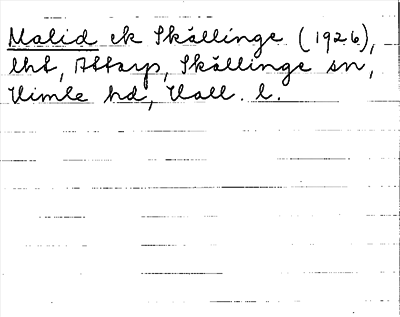 Malid ek Skällinge (1926),
lht, Attarp, Skällinge sn,
Himle hd, Hall. l.